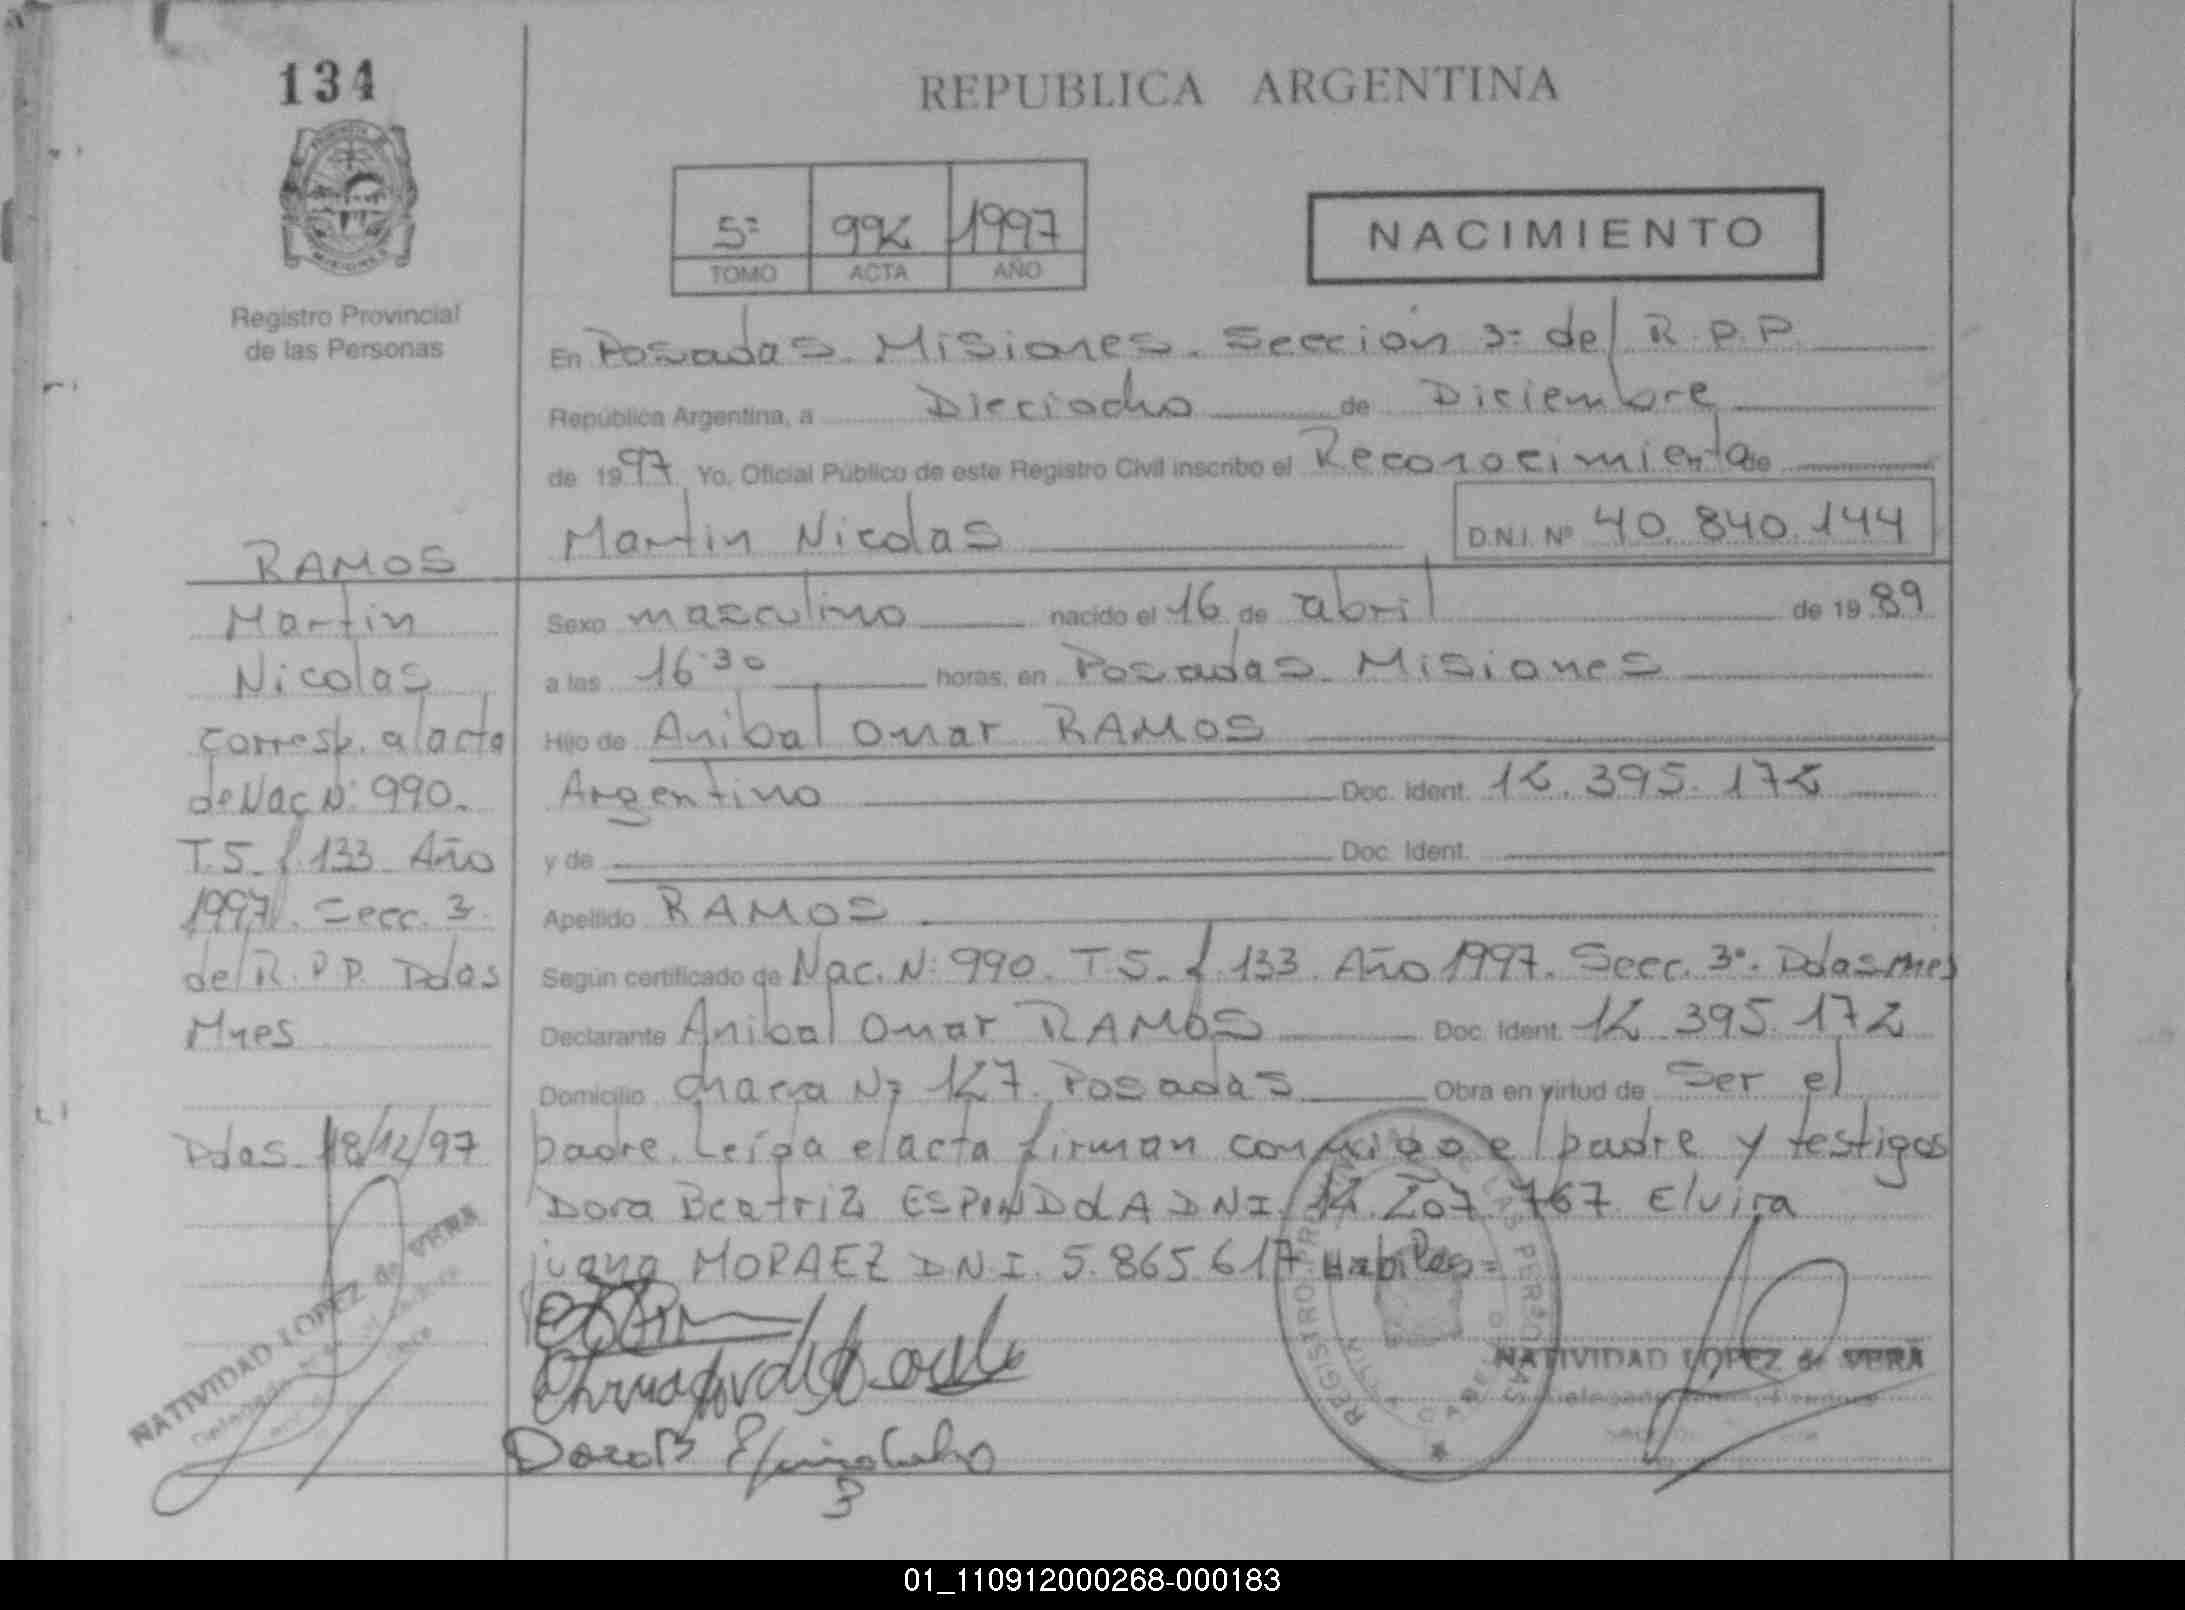 134
REPUBLICA ARGENTINA
5ª 992 1997
TOMO ACTA AÑO
NACIMIENTO
Registro Provincial
de las Personas
En Posadas. Misiones. Sección 3ª del R.P.P.
República Argentina, a Dieciocho de Diciembre
de 1997 Yo, Oficial Público de este Registro Civil inscribo el Reconocimiento de
Martin Nicolas D.N.I. Nº 40.840.144
RAMOS
Martin
Nicolas
corresp. al acta
de Nac. N: 990.
T.5. f. 133 Año
1997. Secc. 3.
del R.P.P. Pdas
Mnes
Pdas. 18/12/97
NATIVIDAD LOPEZ de VERA
Sexo masculino nacido el 16 de abril de 1989
a las 16:30 horas, en Posadas. Misiones
Hijo de Anibal Omar RAMOS
Argentino Doc. Ident. 12.395.172
y de Doc. Ident.
Apellido RAMOS
Según certificado de Nac. N: 990. T 5. f. 133. Año 1997. Secc. 3ª. Pdas Mnes
Declarante Anibal Omar RAMOS Doc. Ident. 12.395.172
Domicilio chacra Nº 127. Posadas Obra en virtud de Ser el
padre. Leída el acta firman conmigo el padre y testigos
Dora Beatriz ESPINDOLA DNI. 12.207.767 Elvira
juana MORAEZ D.N.I. 5.865.617 Habiles=
REGISTRO PROVINCIAL DE LAS PERSONAS
NATIVIDAD LOPEZ de VERA
01_110912000268-000183